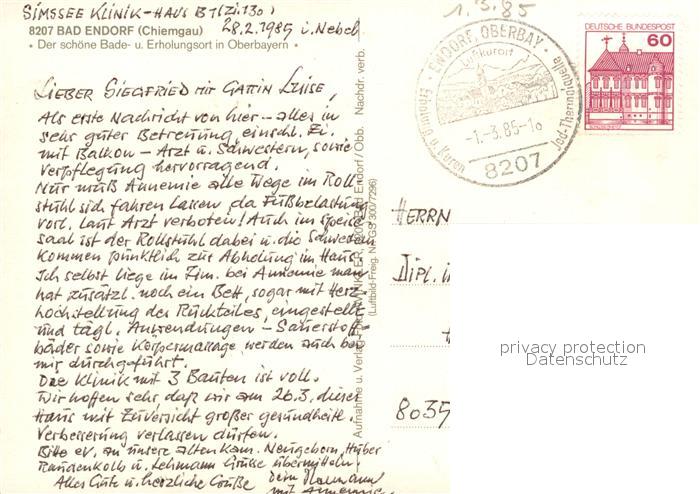 SIMSSEE KLINIK-HAUS B1 (Zi. 130)
28.2.1985 i. Nebel
8207 BAD ENDORF (Chiemgau)
• Der schöne Bade- u. Erholungsort in Oberbayern •
LIEBER SIEGFRIED mit GATTIN LUISE,
Als erste Nachricht von hier – alles in
sehr guter Betreuung, einschl. Zi.
mit Balkon – Arzt u. Schwestern, sowie
Verpflegung hervorragend.
Nur muß Annemie alle Wege im Roll-
stuhl sich fahren lassen da Fußbelastung
vorl. laut Arzt verboten! Auch im Speise-
saal ist der Rollstuhl dabei u. die Schwestern
kommen pünktlich zur Abholung im Haus.
Ich selbst liege im Zim. bei Annemie man
hat zusätzl. noch ein Bett, sogar mit Herz-
hochstellung des Rückteiles, eingestellt
und tägl. Anwendungen – Sauerstoff-
bäder sowie Körpermassage werden auch bei
mir durchgeführt.
Die Klinik mit 3 Bauten ist voll.
Wir hoffen sehr, daß wir am 26.3. dieses
Haus mit Zuversicht großer gesundheitl.
Verbesserung verlassen dürfen.
Bitte ev. an unsere alten Kam. Neugeborn, Huber
Raudenkolb u. Lehmann Grüße übermitteln.
Alles Gute u. herzliche Grüße Dein
mit Annemie
Aufnahme u. Verlag: Foto WINKLER, 8207 Bad Endorf / Obb. Nachdr. verb.
(Luftbild-Freig. Nr. GS 300/7296)
1.3.85
ENDORF, OBERBAY
Luftkurort
Erholung u. Kuren
Jod-Thermalquelle
-1.-3.85-10
8207
DEUTSCHE BUNDESPOST
60
HERRN
DIPL. I
8035
privacy protection
Datenschutz